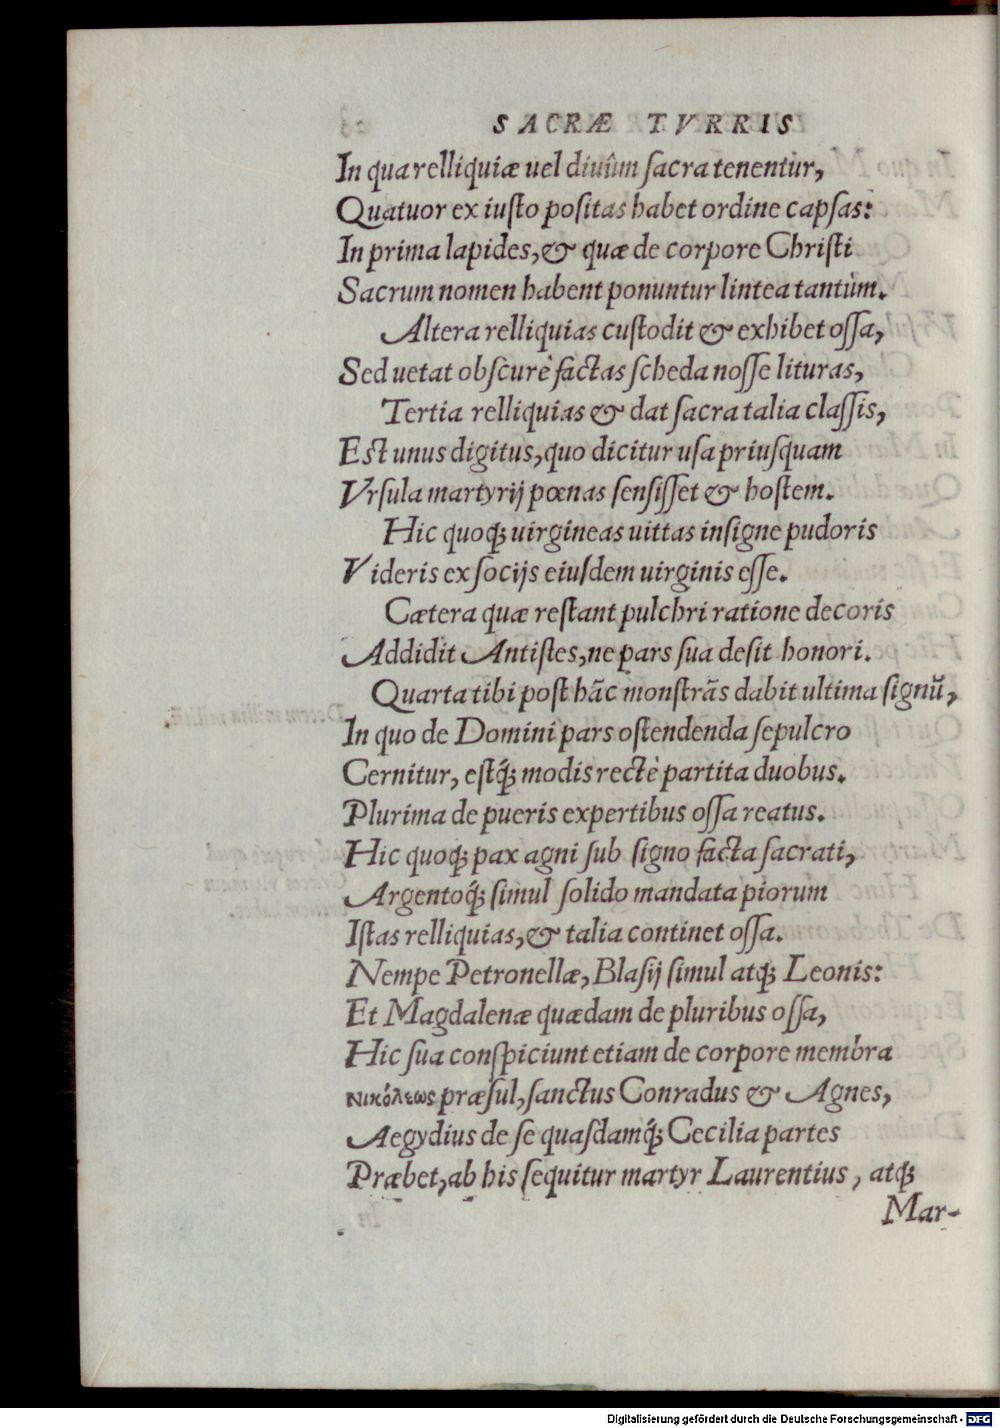 SACRÆ TVRRIS
In qua relliquiæ uel diuûm ſacra tenentur,
Quatuor ex iuſto poſitas habet ordine capſas:
In prima lapides, & quæ de corpore Chriſti
Sacrum nomen habent ponuntur lintea tantùm.
Altera relliquias cuſtodit & exhibet oſſa,
Sed uetat obſcurè factas ſcheda noſſe lituras,
Tertia relliquias & dat ſacra talia claſſis,
Eſt unus digitus, quo dicitur uſa priuſquam
Vrſula martyrij pœnas ſenſiſſet & hoſtem.
Hic quoq; uirgineas uittas inſigne pudoris
Videris ex ſocijs eiuſdem uirginis eſſe.
Cætera quæ reſtant pulchri ratione decoris
Addidit Antiſtes, ne pars ſua deſit honori.
Quarta tibi poſt hãc monſtrãs dabit ultima ſignũ,
In quo de Domini pars oſtendenda ſepulcro
Cernitur, eſtq́; modis rectè partita duobus.
Plurima de pueris expertibus oſſa reatus.
Hic quoq; pax agni ſub ſigno facta ſacrati,
Argentoq́; ſimul ſolido mandata piorum
Iſtas relliquias, & talia continet oſſa.
Nempe Petronellæ, Blaſij ſimul atq; Leonis:
Et Magdalenæ quædam de pluribus oſſa,
Hic ſua conſpiciunt etiam de corpore membra
νικόλεως præſul, ſanctus Conradus & Agnes,
Aegydius de ſe quaſdamq́; Cecilia partes
Præbet, ab his ſequitur martyr Laurentius, atq;
Mar-
Digitalisierung gefördert durch die Deutsche Forschungsgemeinschaft - DFG